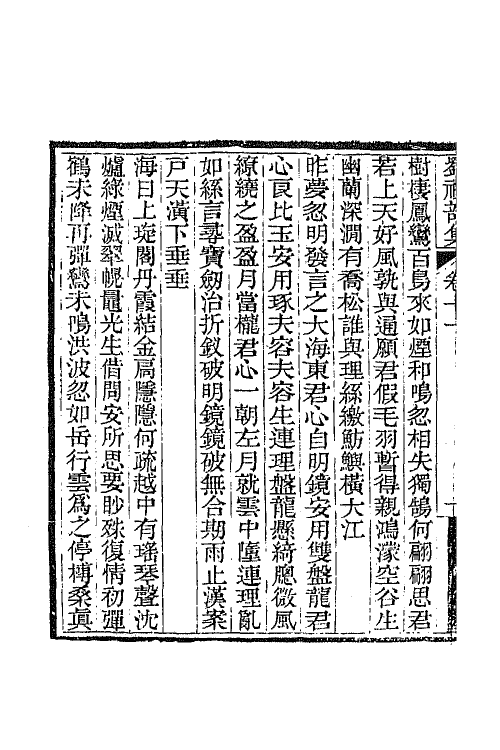 樹棲鳳鸞百鳥來如煙和鳴忽相失獨鵠何翩翩思君
若上天好風孰與通願君假毛羽暫得親鴻濛空谷生
幽蘭深澗有喬松誰與理絲繳魴鱮橫大江
昨夢忽明發言之大海東君心自明鏡安用雙盤龍君
心良比玉安用琢夫容夫容生連理盤龍懸綺驄微風
繚繞之盈盈月當櫳君心一朝左月就雲中墮連理亂
如絲言尋寶劒治折釵破明鏡鏡破無合期雨止漢案
戶天潢下垂垂
海日上璇閣丹霞結金扃隱隱何疏越中有瑤琴聲沈
爐綠煙滅翠幌曇光生借問安所思要眇殊復情初彈
鶴未降再彈鸞未鳴洪波忽如岳行雲為之停榑桑眞